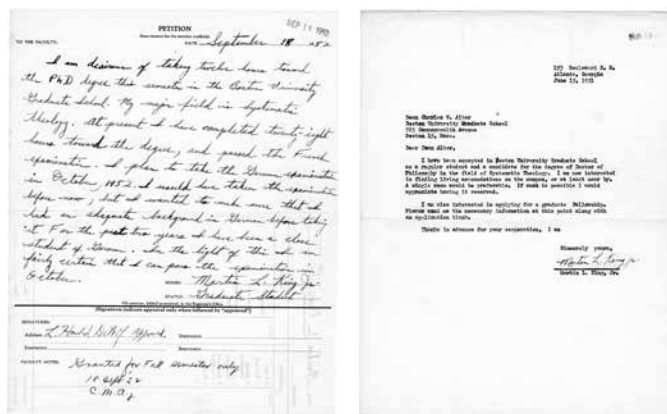 SEP 18 1952
PETITION
TO THE FACULTY:
DATE September 18 1952
I am desirous of taking twelve hours toward
the PhD degree this semester in the Boston University
Graduate School. My major field is Systematic
Theology. At present I have completed twenty-eight
hours toward the degree, and passed the French
examination. I plan to take the German examination
in October, 1952. I would have taken the examination
before now, but I wanted to make sure that I
had an adequate background in German before taking
it. For the past two years I have been a close
student of German. In the light of this I am
fairly certain that I can pass the examination in
October.
SIGNED Martin L. King Jr.
STATUS Graduate Student
(Signatures indicate approval only when followed by "approved")
SIGNATURES:
Adviser L. Harold DeWolf Approved
FACULTY NOTES: Granted for Fall semester only
18 Sept 52
C.M.A.
193 Boulevard N. E.
Atlanta, Georgia
June 15, 1951
Dean Charles W. Alter
Boston University Graduate School
725 Commonwealth Avenue
Boston 15, Mass.
Dear Dean Alter,
I have been accepted in Boston University Graduate School
as a regular student and a candidate for the degree of Doctor of
Philosophy in the field of Systematic Theology. I am now interested
in finding living accomodations on the campus, or at least near by.
A single room would be preferable. If such is possible I would
appreciate having it reserved.
I am also interested in applying for a graduate fellowship.
Please send me the necessary information at this point along with
an application blank.
Thanks in advance for your cooperation. I am
Sincerely yours,
Martin L. King Jr.
Martin L. King, Jr.